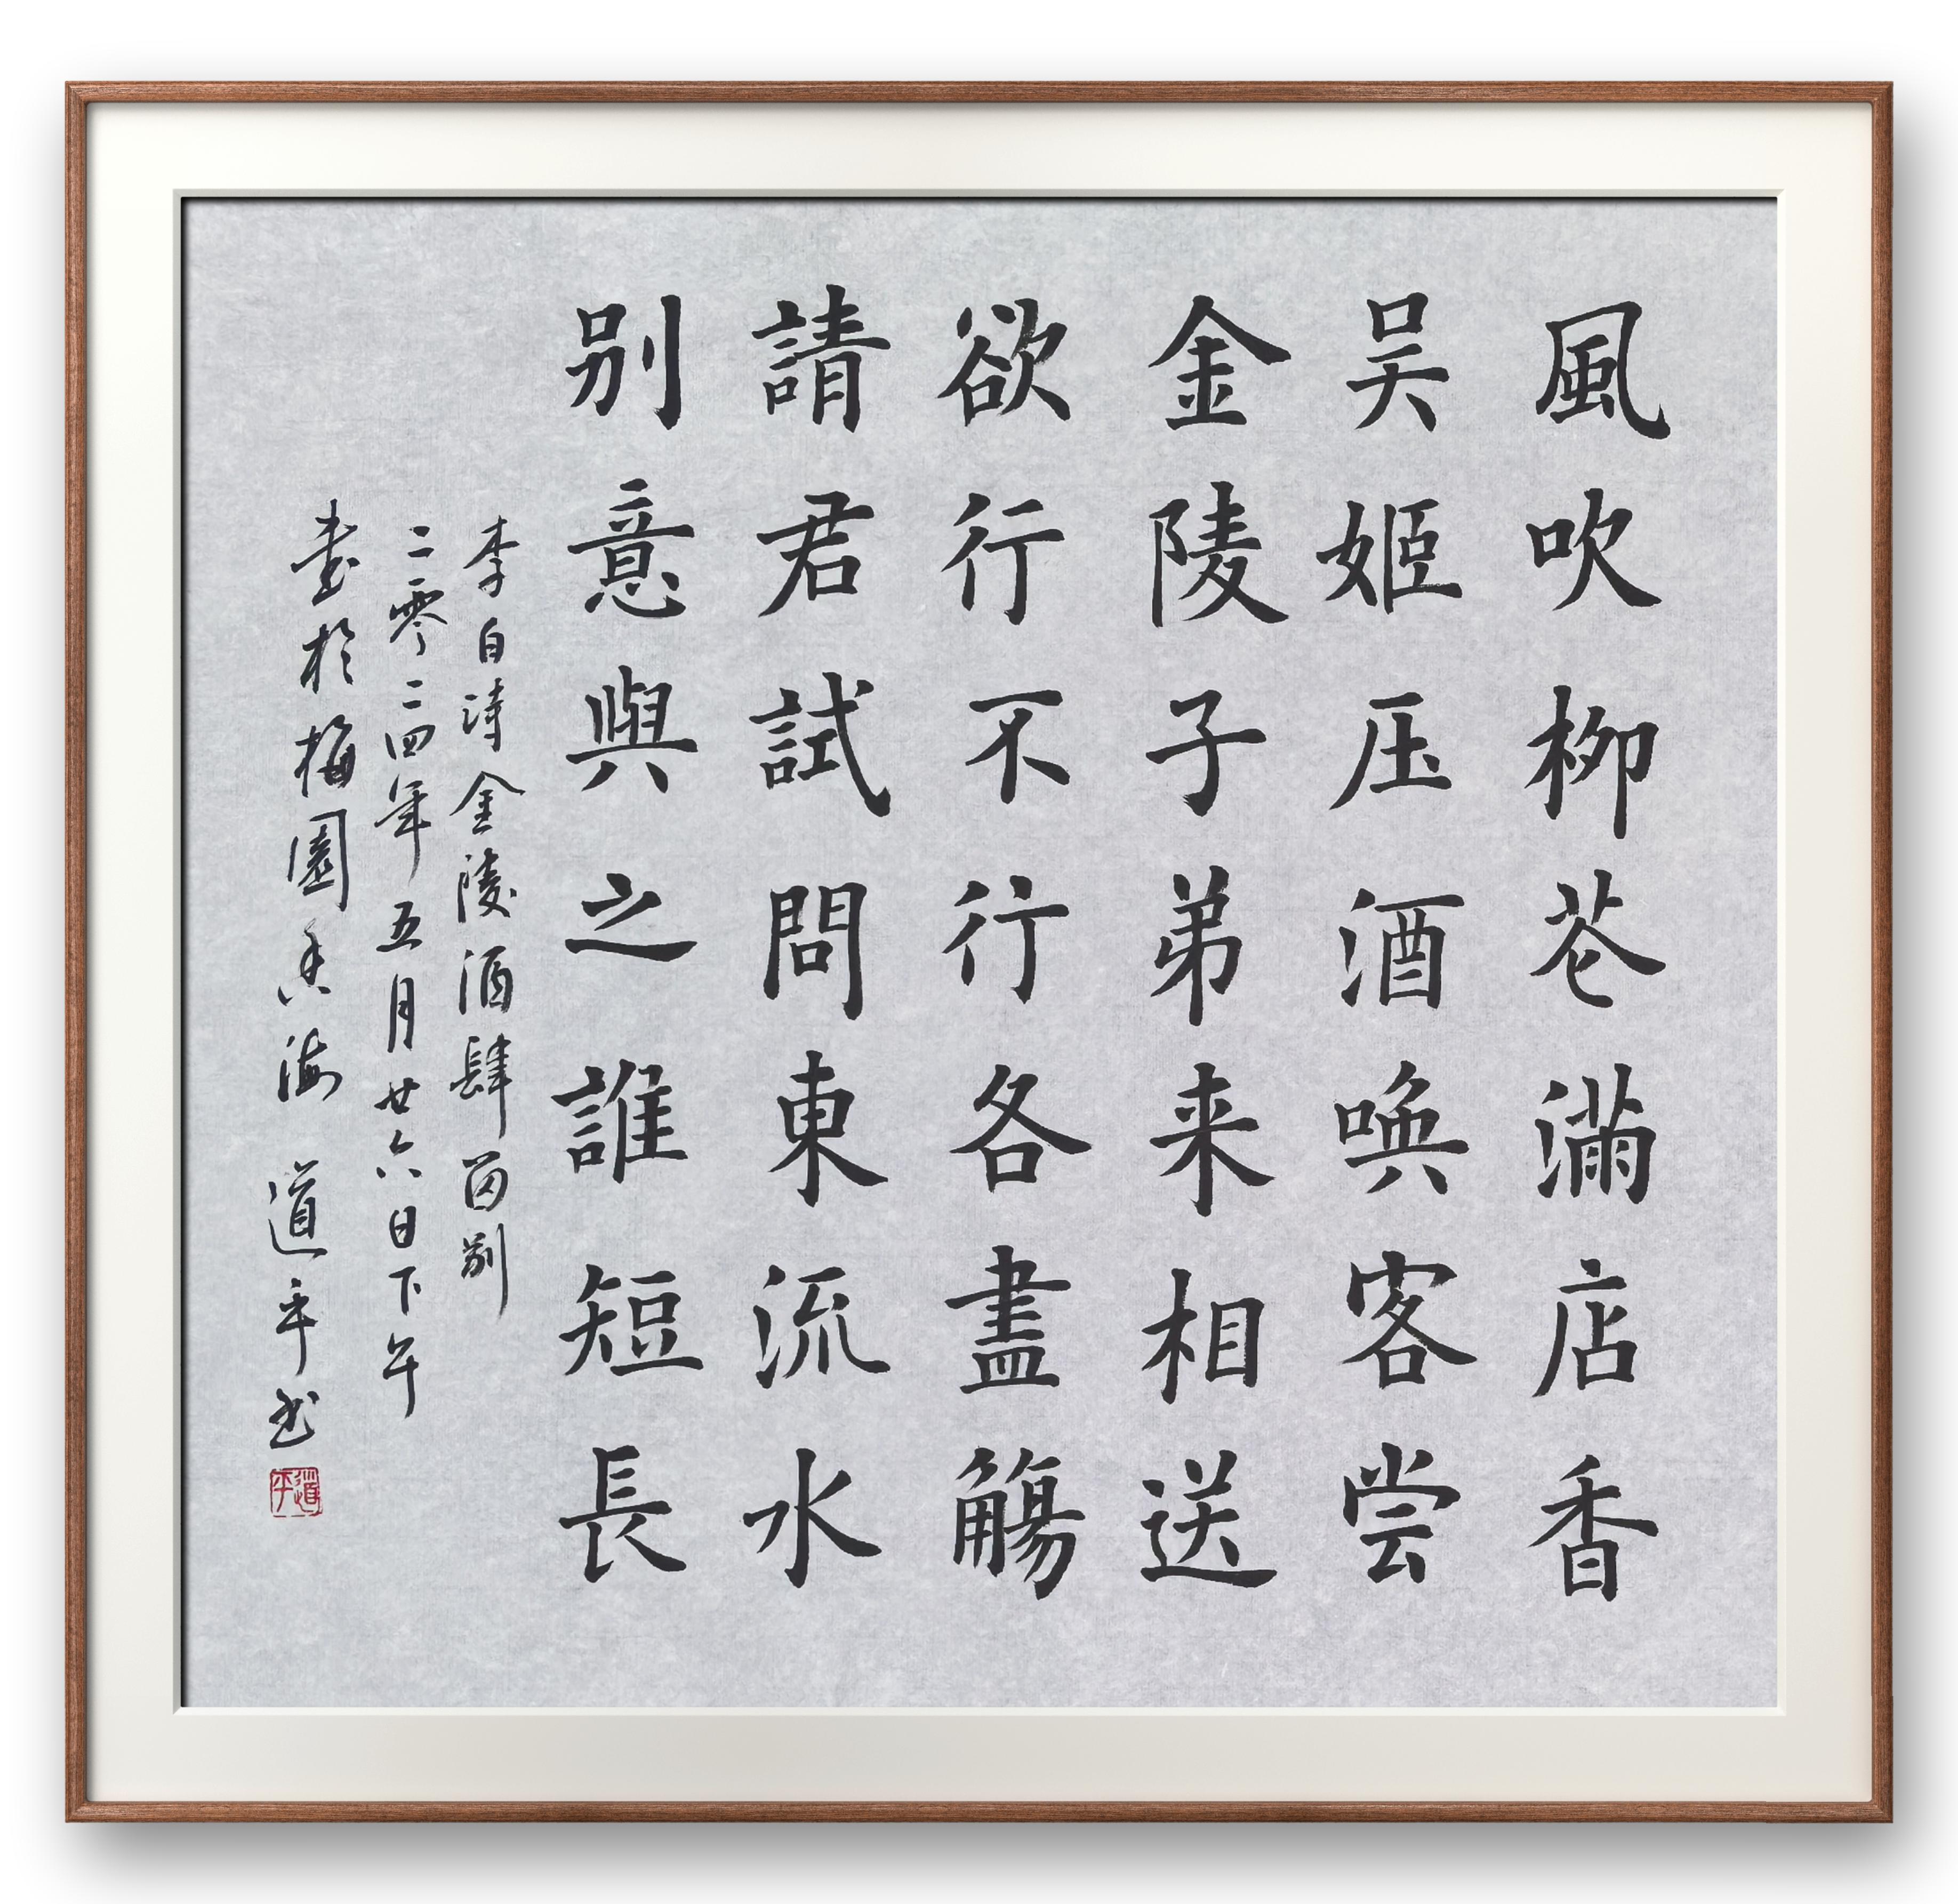 風吹柳花滿店香
吴姬压酒唤客尝
金陵子弟来相送
欲行不行各盡觴
請君試問東流水
别意與之誰短長
李白詩金陵酒肆留别
二零二四年五月廿六日下午
書於梅園香海 道平书
道平